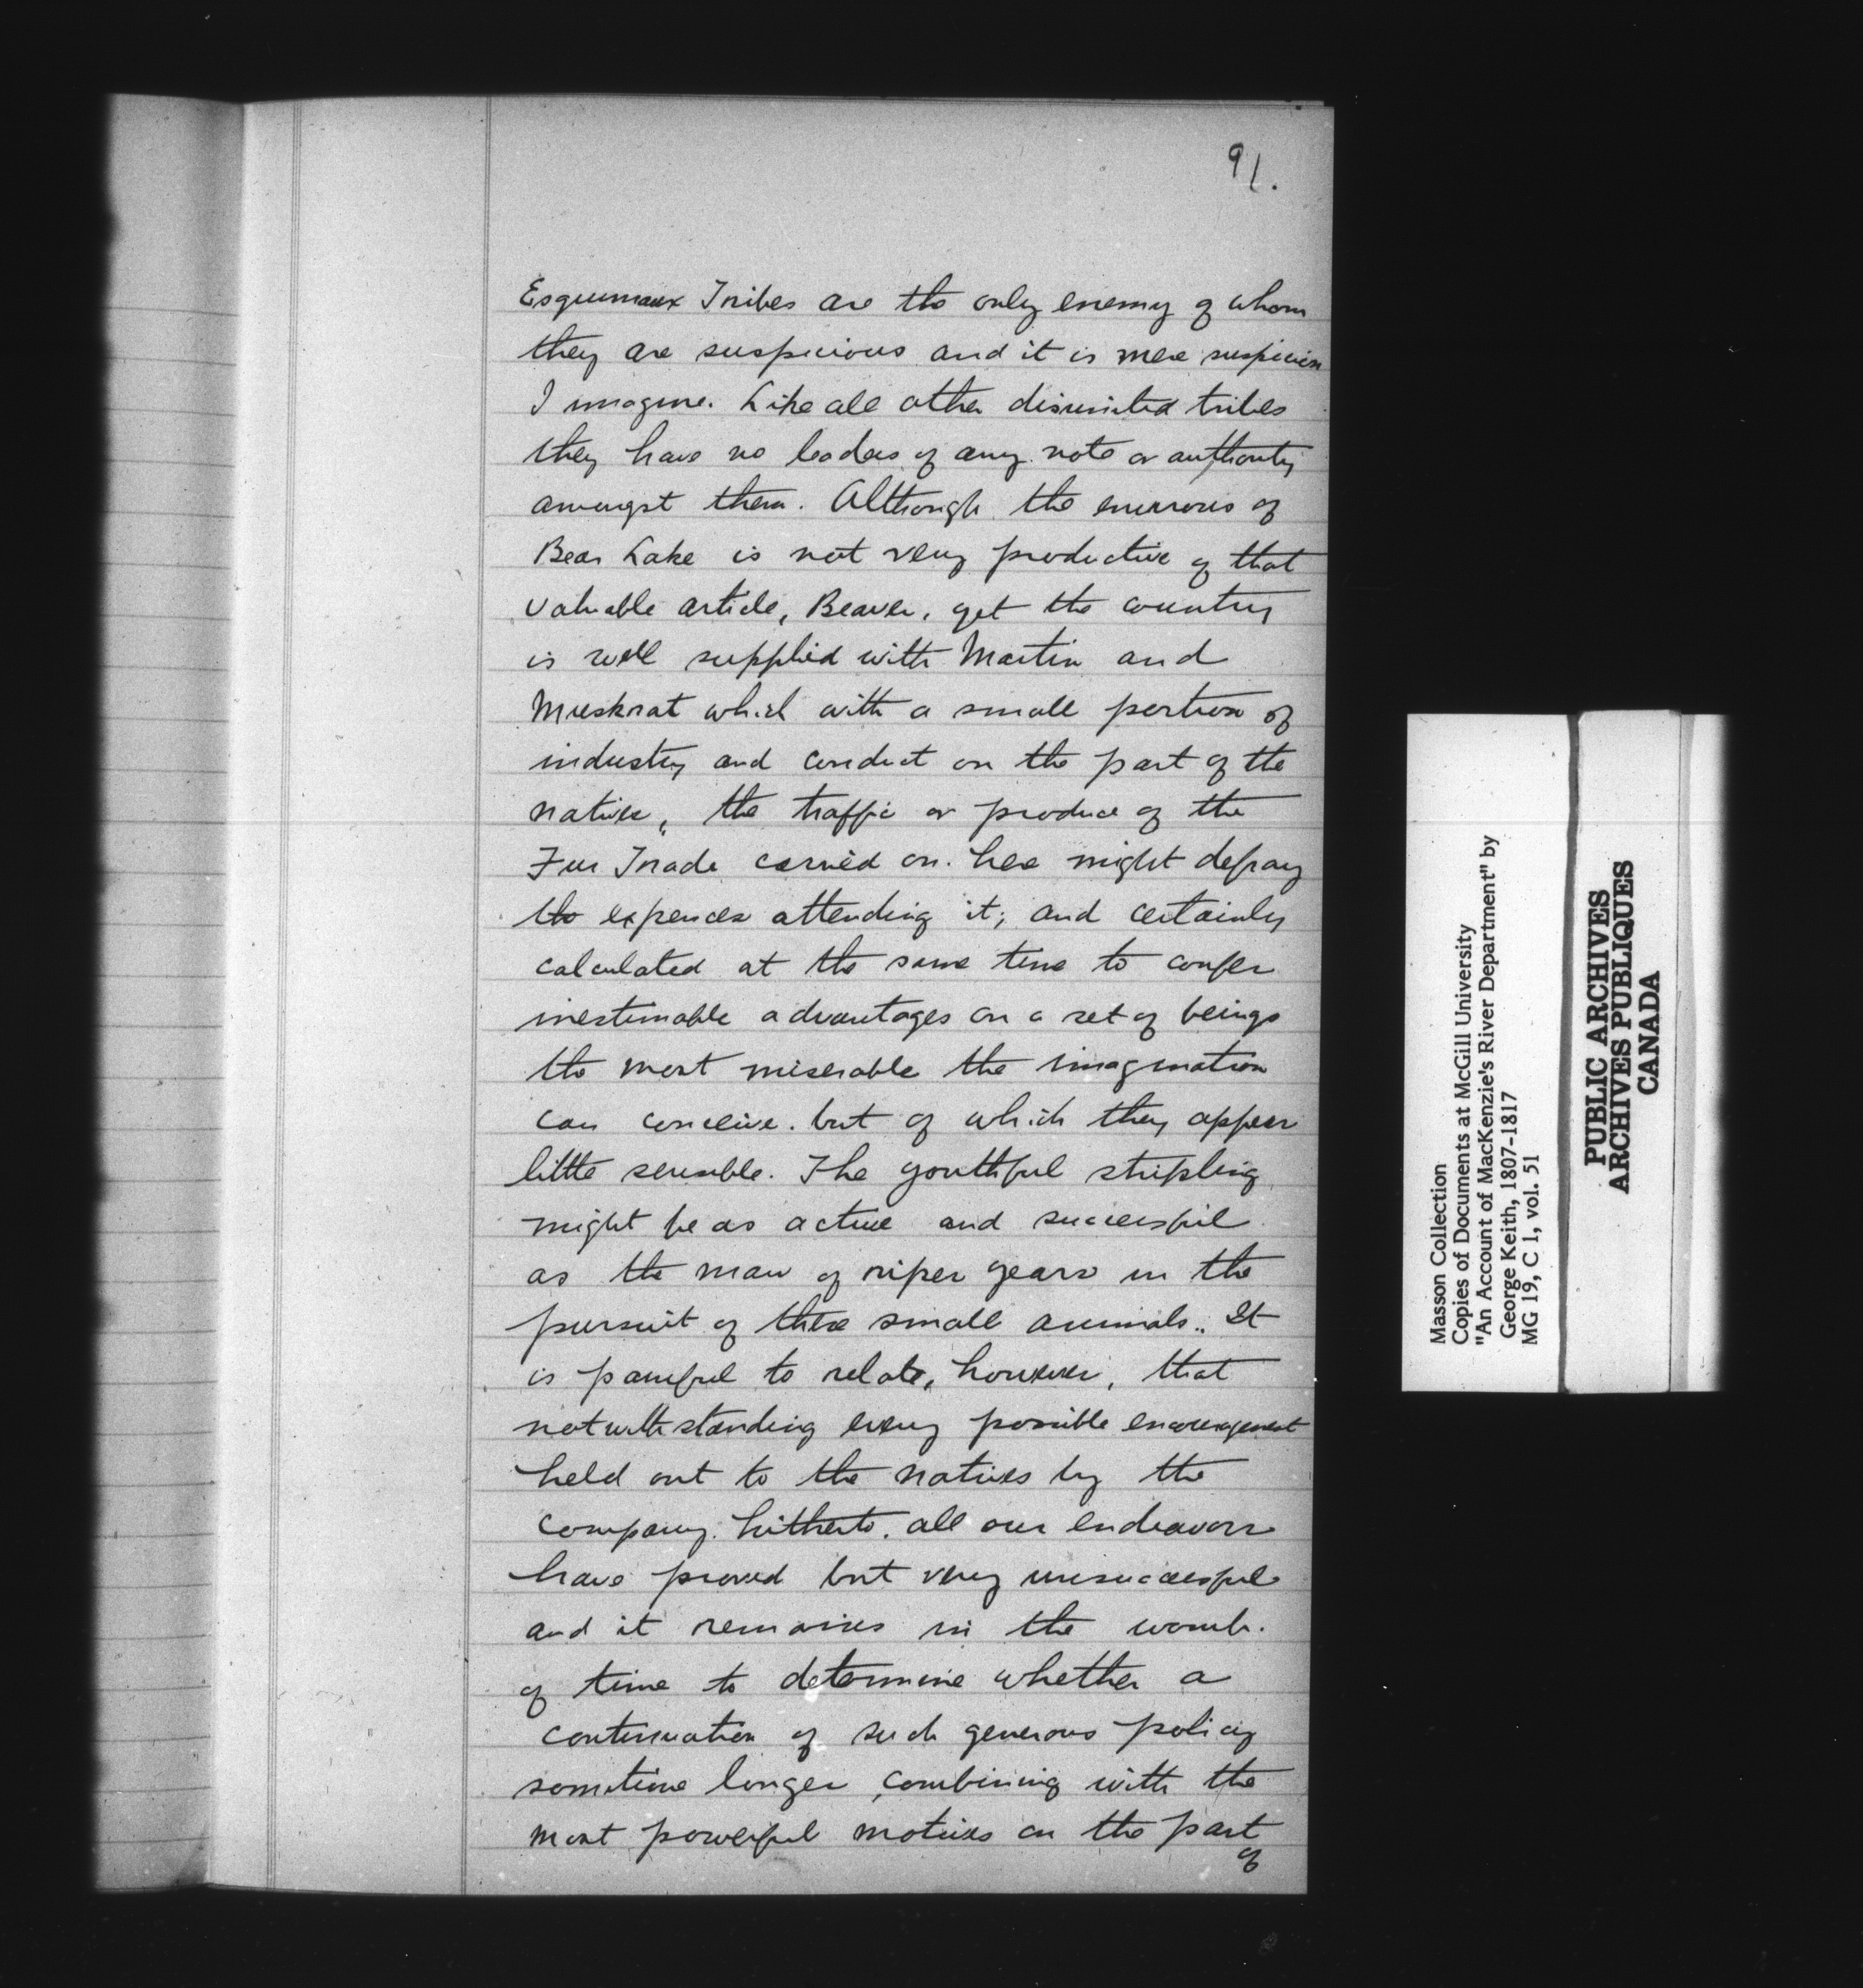 91.
Esquimaux Tribes are the only enemy of whom
they are suspicious and it is mere suspicion
I imagine. Like all other disunited tribes
they have no leaders of any note or authority
amongst them. Although the environs of
Bear Lake is not very productive of that
valuable article, Beaver, yet the country
is well supplied with Martin and
Muskrat which with a small portion of
industry and conduct on the part of the
natives, the traffic or produce of the
Fur Trade carried on here might defray
the expences attending it; and certainly
calculated at the same time to confer
inestimable advantages on a set of beings
the most miserable the imagination
can conceive. but of which they appear
little sensible. The youthful stripling
might be as active and successful
as the man of riper years in the
pursuit of these small animals.. It
is painful to relate, however, that
notwithstanding every possible encouragement
held out to the natives by the
company. hitherto. all our endeavors
have proved but very unsuccessful
and it remains in the womb.
of time to determine whether a
continuation of such generous policy
sometime longer, combining with the
most powerful motives on the part
of
Masson Collection
Copies of Documents at McGill University
"An Account of MacKenzie's River Department" by
George Keith, 1807-1817
MG 19, C 1, vol. 51
PUBLIC ARCHIVES
ARCHIVES PUBLIQUES
CANADA